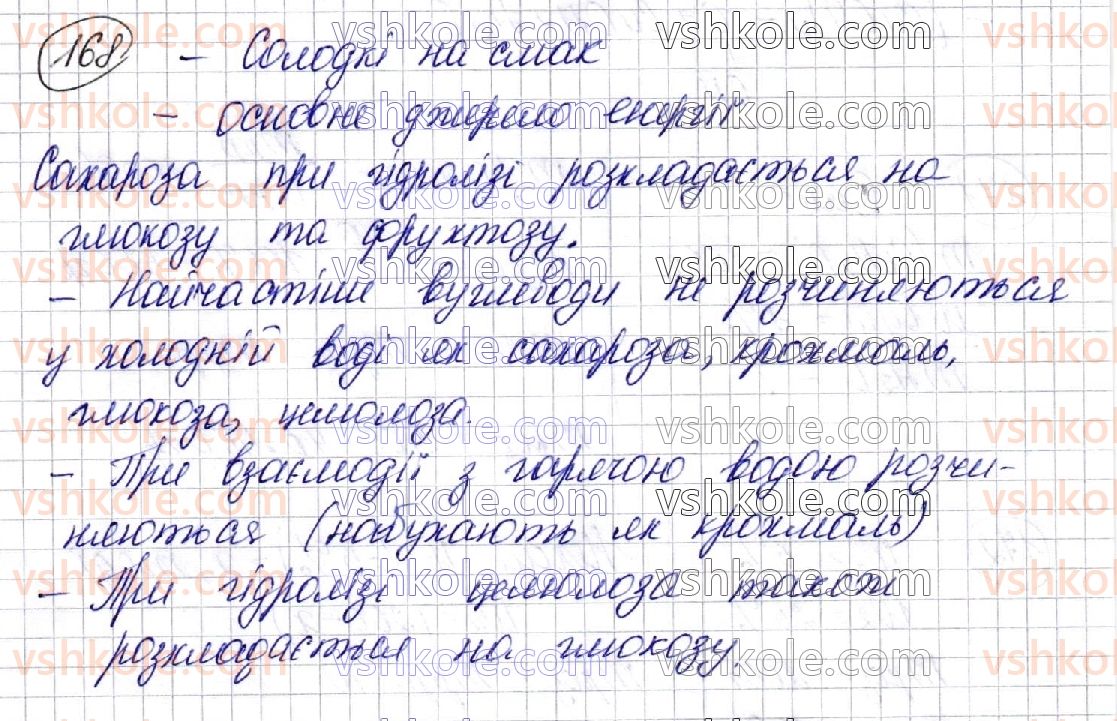 168
- Солодкі на смак
- основне джерело енергії
Сахароза при гідролізі розкладається на
глюкозу та фруктозу.
- Найчастіше вуглеводи не розчиняються
у холодній воді як сахароза, крохмаль,
глюкоза, целюлоза.
- При взаємодії з гарячою водою розчи-
няються (набухають як крохмаль)
- При гідролізі целюлоза також
розкладається на глюкозу.
vshkole.com